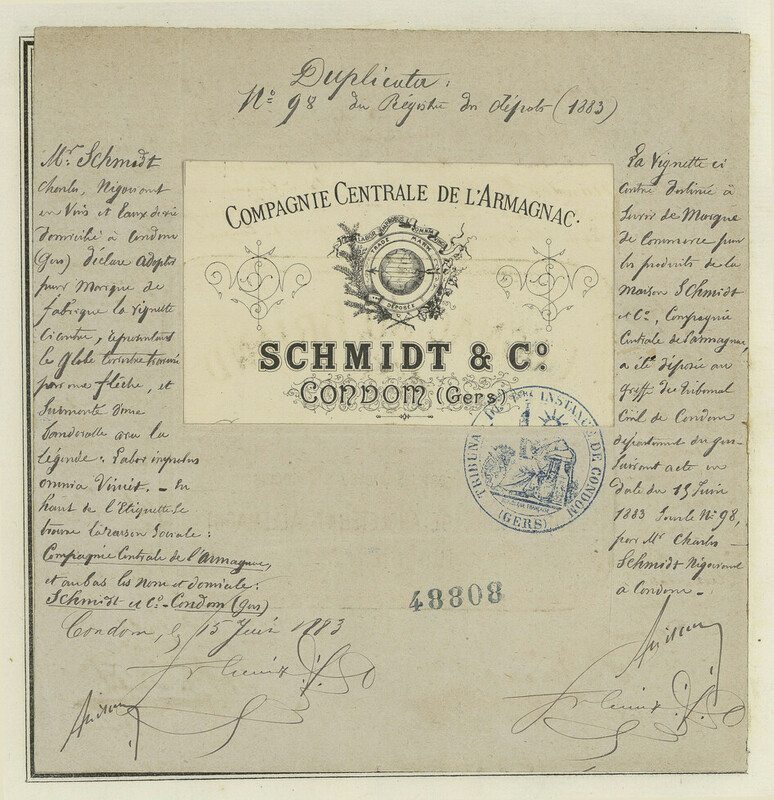 Duplicata :
N° 98 du Régistre des dépots (1883)
Mr. Schmidt
Charles, Négociant
en Vins et Eaux de vie
domicilié à Condom
(Gers) déclare adopter
pour Marque de
fabrique la vignette
ci contre, représentant
le globe terrestre traversé
par une flèche, et
Surmonté d'une
banderolle avec la
légende : Labor improbus
omnia Vincit. - En
haut de l'Etiquette se
trouve la raison Sociale :
Compagnie Centrale de l'Armagnac,
et au bas les nom et domicile :
Schmidt et Co - Condom (Gers)
Condom, le 15 Juin 1883
COMPAGNIE CENTRALE DE L'ARMAGNAC.
LABOR IMPROBUS OMNIA VINCIT
TRADE MARK
DÉPOSÉE
SCHMIDT & Co.
CONDOM (Gers)
TRIBUNAL DE 1ère INSTANCE DE CONDOM
(GERS)
48808
La Vignette ci
contre destinée à
Servir de Marque
de Commerce pour
les produits de la
maison Schmidt
et Co, Compagnie
Centrale de l'armagnac,
a été déposée au
Greffe du Tribunal
Civil de Condom
département du gers
Suivant acte en
date du 15 Juin
1883 Sous le N° 98,
par Mr Charles
Schmidt Négociant
à Condom. -